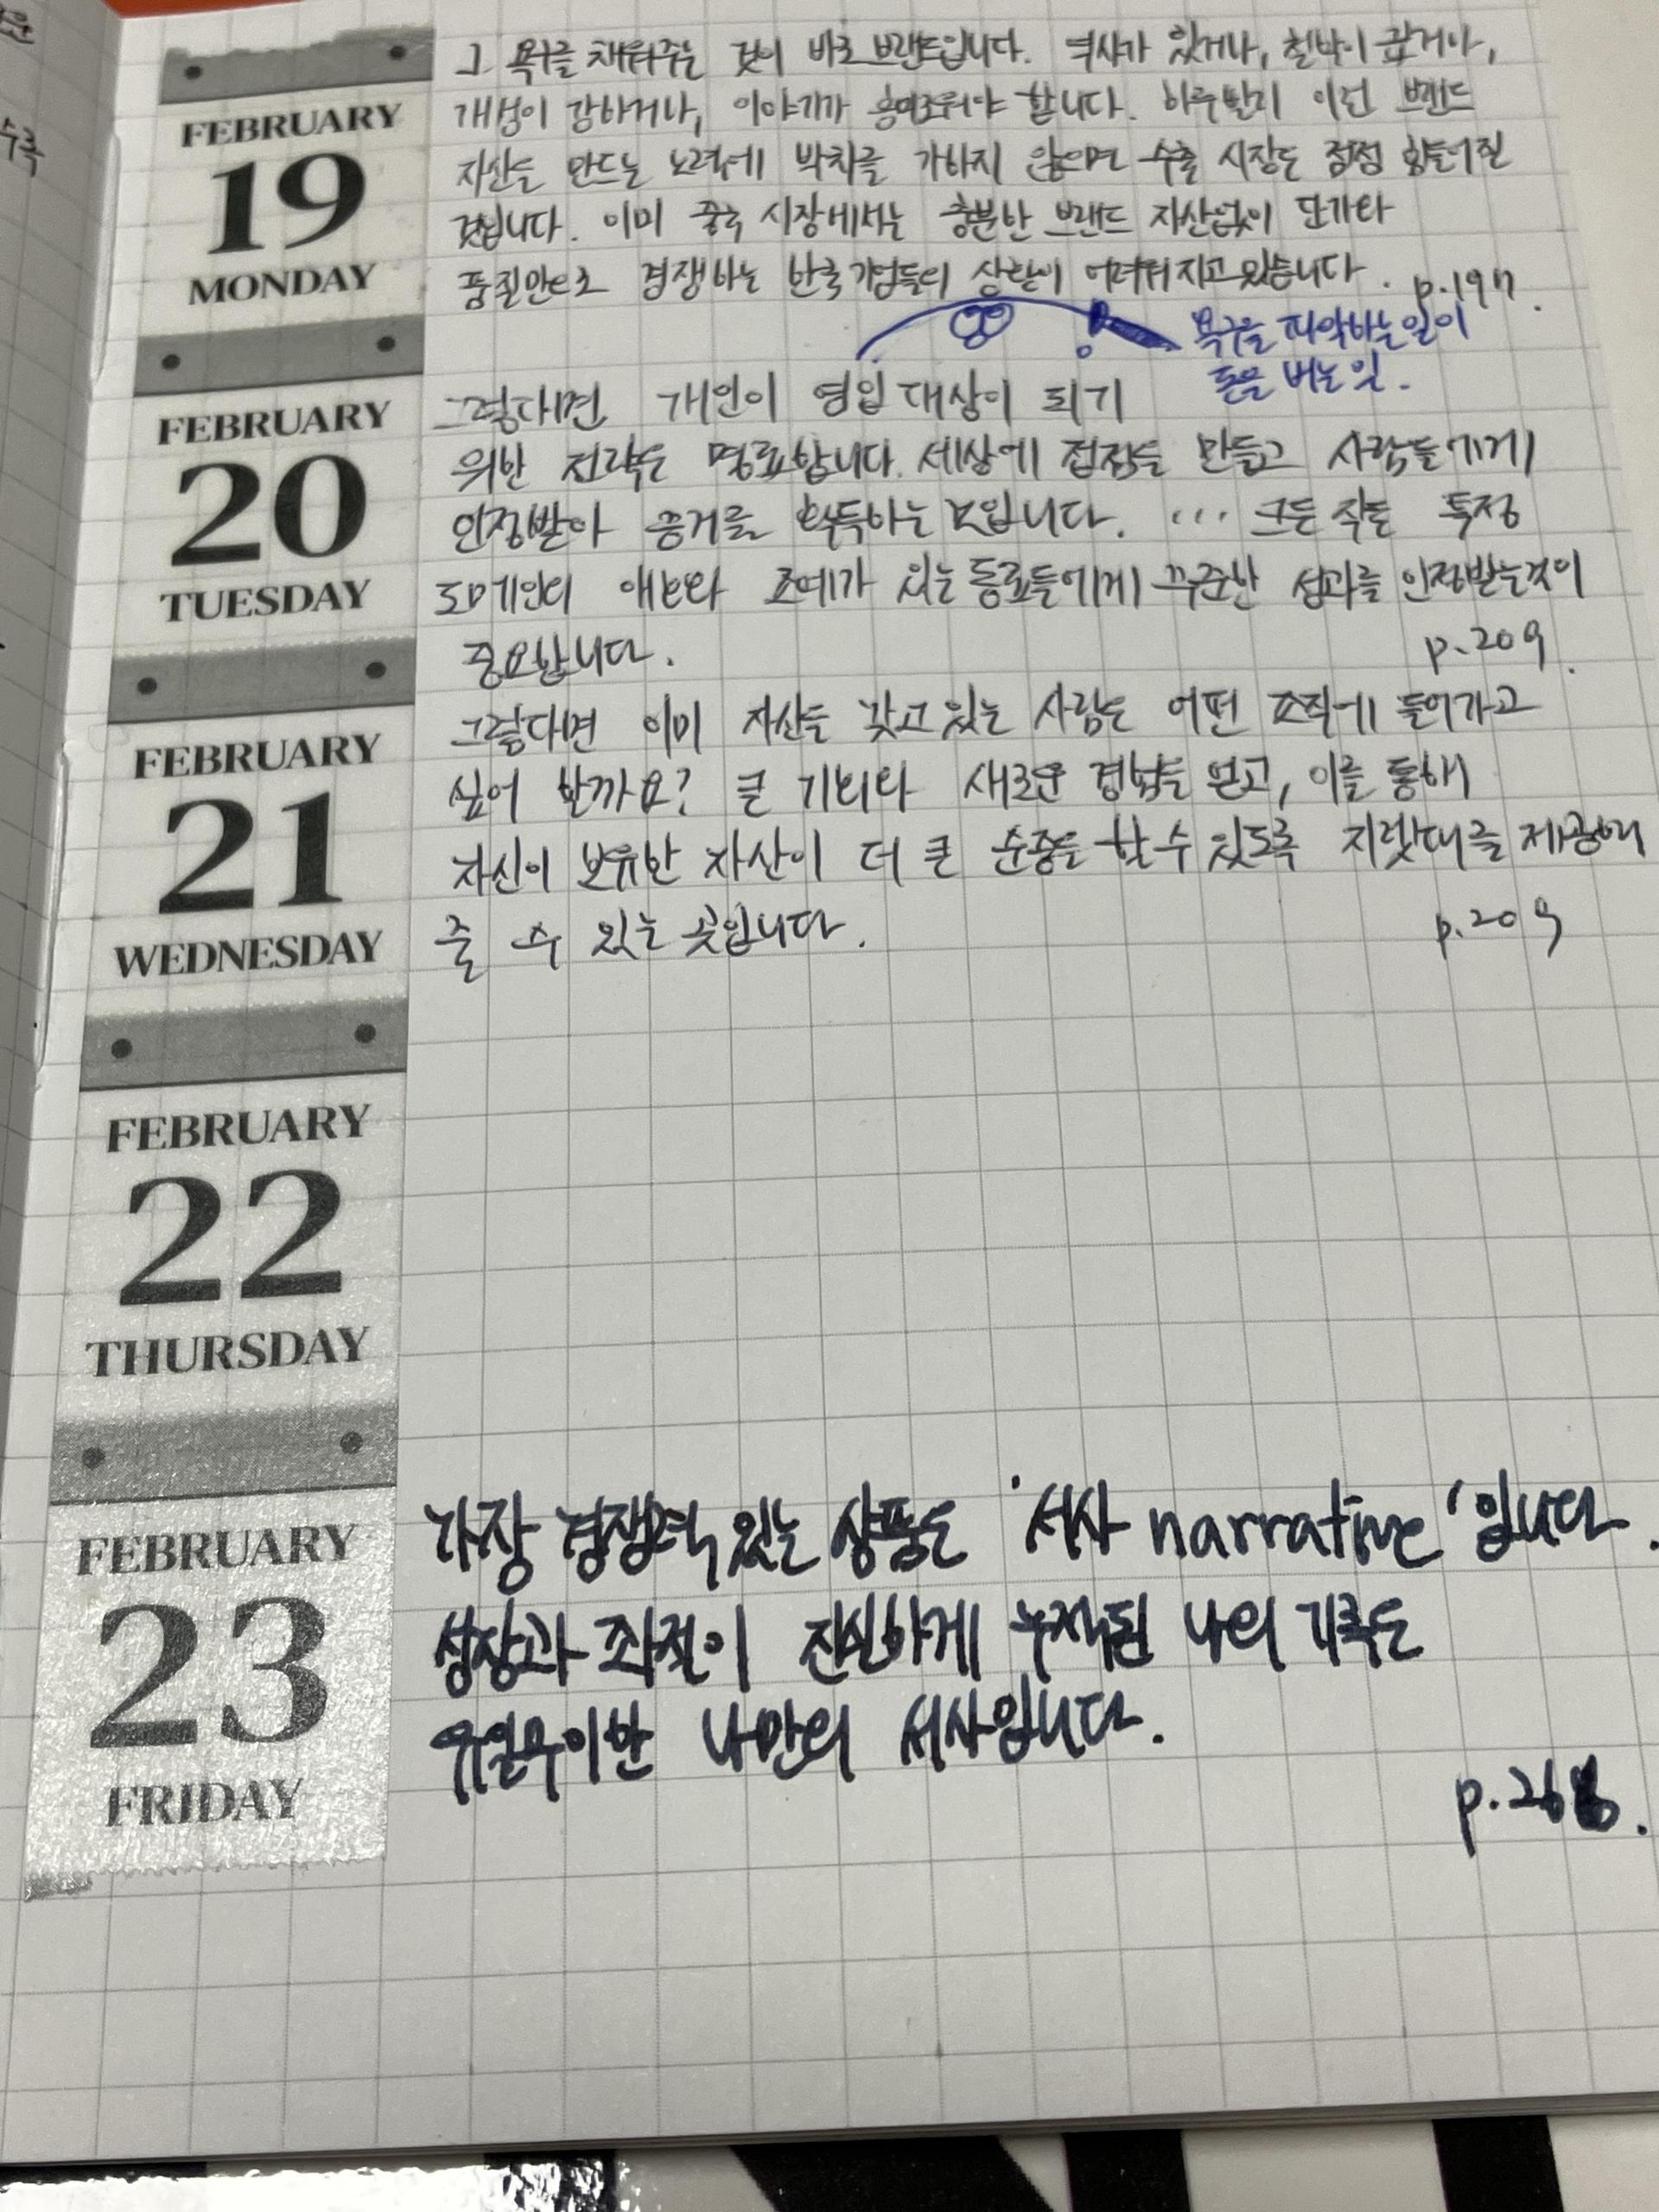 수록
FEBRUARY
19
MONDAY
그 욕구를 채워주는 것이 바로 브랜드입니다. 역사가 있거나, 철학이 깊거나,
개성이 강하거나, 이야기가 흥미로워야 합니다. 하루빨리 이런 브랜드
자산을 만드는 노력에 박차를 가하지 않으면 수출 시장도 점점 힘들어질
것입니다. 이미 중국 시장에서는 충분한 브랜드 자산없이 단가와
품질만으로 경쟁하는 한국기업들의 상황이 어려워지고 있습니다. p.197.
욕구를 파악하는 일이
돈을 버는 일.
FEBRUARY
20
TUESDAY
그렇다면 개인이 영입 대상이 되기
위한 전략은 명료합니다. 세상에 접점을 만들고 사람들에게
인정받아 증거를 획득하는 것입니다. ... 크든 작든 특정
도메인의 애호와 조예가 있는 동료들에게 꾸준한 성과를 인정받는것이
중요합니다. p.209.
FEBRUARY
21
WEDNESDAY
그렇다면 이미 자산을 갖고 있는 사람은 어떤 조직에 들어가고
싶어 할까요? 큰 기회와 새로운 경험을 얻고, 이를 통해
자신이 보유한 자산이 더 큰 순증을 할 수 있도록 지렛대를 제공해
줄 수 있는 곳입니다. p.209
FEBRUARY
22
THURSDAY
FEBRUARY
23
FRIDAY
가장 경쟁력 있는 상품은 '서사 narrative'입니다.
성장과 좌절이 진실하게 누적된 나의 기록은
유일무이한 나만의 서사입니다.